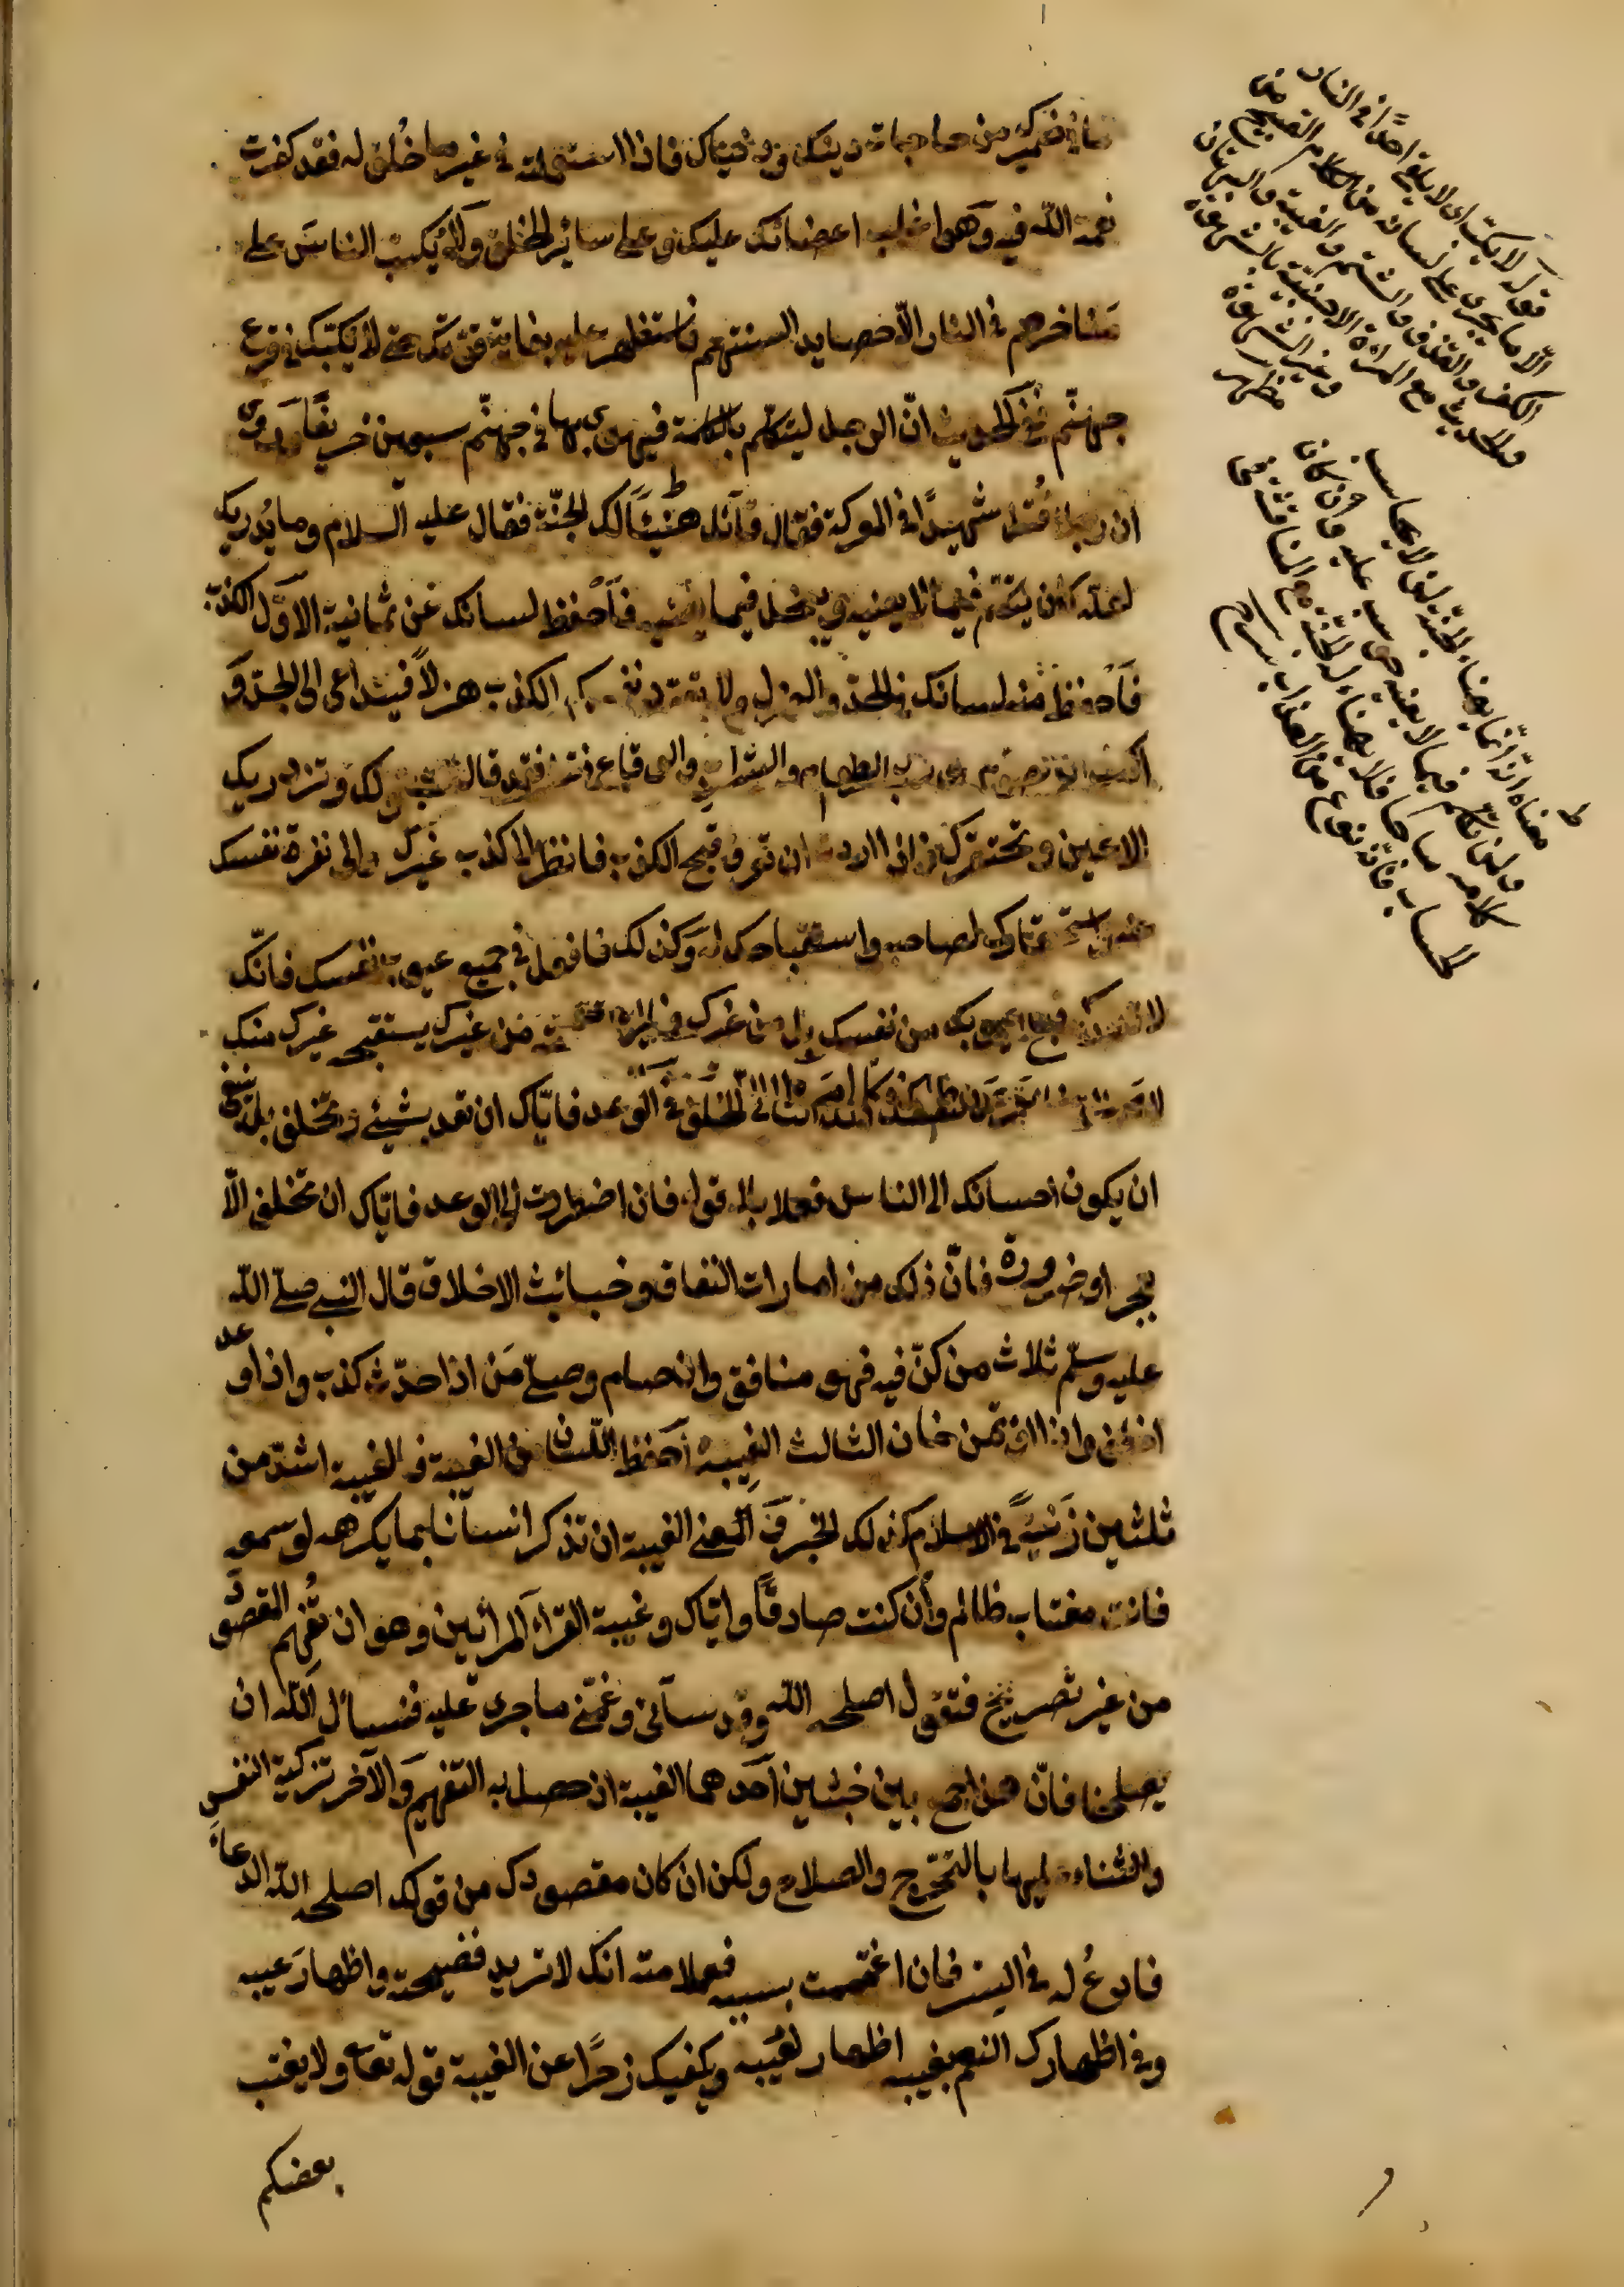 ما في ضميرك من حاجات دينك ودنياك فاذا استعملته في غير ما خُلق له فقد كفرت
نعمة الله فيه وهو اغلب اعضائك عليك وعلى سائر الخلق ولا يكبّ الناس على
مناخرهم في النار الّا حصايد السنتهم فاستظهر عليه بغاية قوّتك حتى لا يكبّك في قعر
جهنّم ففي الحديث انّ الرجل ليتكلّم بالكلمة فيهوى بها في جهنّم سبعين خريفًا وروى
ان رجلا قُتل شهيدًا في المعركة فقال قائل هنيئًا لك الجنّة فقال عليه السلام وما يُدريك
لعلّه كان يتكلّم فيما لا يعنيه ويبخل فيما يغنيه فاحفظ لسانك عن ثمانية الاوّل الكذب
فاحفظ منه لسانك في الجدّ والهزل ولا تعوّد نفسك الكذب هزلًا فيتداعى الى الجدّ و
فقد قالت لك وتزدريك
الاعين وتحتقرك فان اردت ان تعرف قبح الكذب فانظر الى كذب غيرك والى نفرة نفسك
عنه واستحقارك لصاحبه واستقباحك له وكذلك فافعل في جميع عيوب نفسك فانّك
لا تدرك قبح عيوبك من نفسك بل من غيرك فما من غيرك يستقبحه غيرك منك
الخلف في الوعد فايّاك ان تعد بشيئ وتخلف بل ينبغى
ان يكون احسانك الى الناس فعلا بلا قول فان اضطررت الى الوعد فايّاك ان تخلف الّا
بعجز او ضرورة فانّ ذلك من امارات النفاق وخبائث الاخلاق قال النبي صلّى اللّه
عليه وسلّم ثلاث من كنّ فيه فهو منافق وان صام وصلّى مَن اذا حدّث كذب واذا وعد
اخلف واذا ائتمن خان الثالث الغيبة احفظ اللسان عن الغيبة فالغيبة اشدّ من
ثلثين زَنْيَةً في الاسلام كذلك الخبر ومعنى الغيبة ان تذكر انسانا بما يكرهه لو سمعه
فانت مغتاب ظالم وان كنت صادقًا وايّاك وغيبة القرّاء المرائين وهو ان تُفهم المقصود
من غير تصريح فتقول اصلحه اللّه وقد سآنى وغمّنى ما جرى عليه فنسأل اللّه ان
يصلحنا فانّ هذا جمع بين خبثين احدهما الغيبة اذ حصل به التفهيم والآخر تزكية النفس
والثناء عليها بالتحرّج والصلاح ولكن ان كان مقصودك من قولك اصلحه اللّه الدعاءَ
فادعُ له في السّر فان اغتممت بسببه فعلامته انك لا تريد فضيحته واظهار عيبه
وفي اظهارك الغم بعيبه اظهار لعيبه ويكفيك زجرًا عن الغيبة قوله تعالى ولا يغتب
بعضكم
قوله لا يكبّ اى لا يلقى احدًا في النار
الّا ما يجرى على لسانه من الكلام القبيح من
الكفر والقذف والشتم والغيبة والبهتان
والحديث مع المرأة الاجنبيّة بالشهوة
وغير الشهوة
مظهر
معناه انّه انّما يهناء الجنّة لمن لا يحاسب
ولمن تكلّم فيما لا يعنيه حوسب عليه وان كان
كلامه مباحا فلا يهناء له الجنّة مع المناقشة في
الحساب فانّه نوع من العذاب